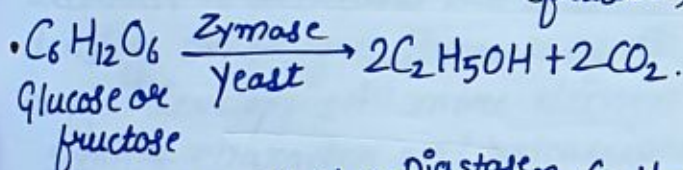 • C₆H₁₂O₆ Zymase Yeast → 2C₂H₅OH + 2CO₂.
Glucose or
fructose
Diastase